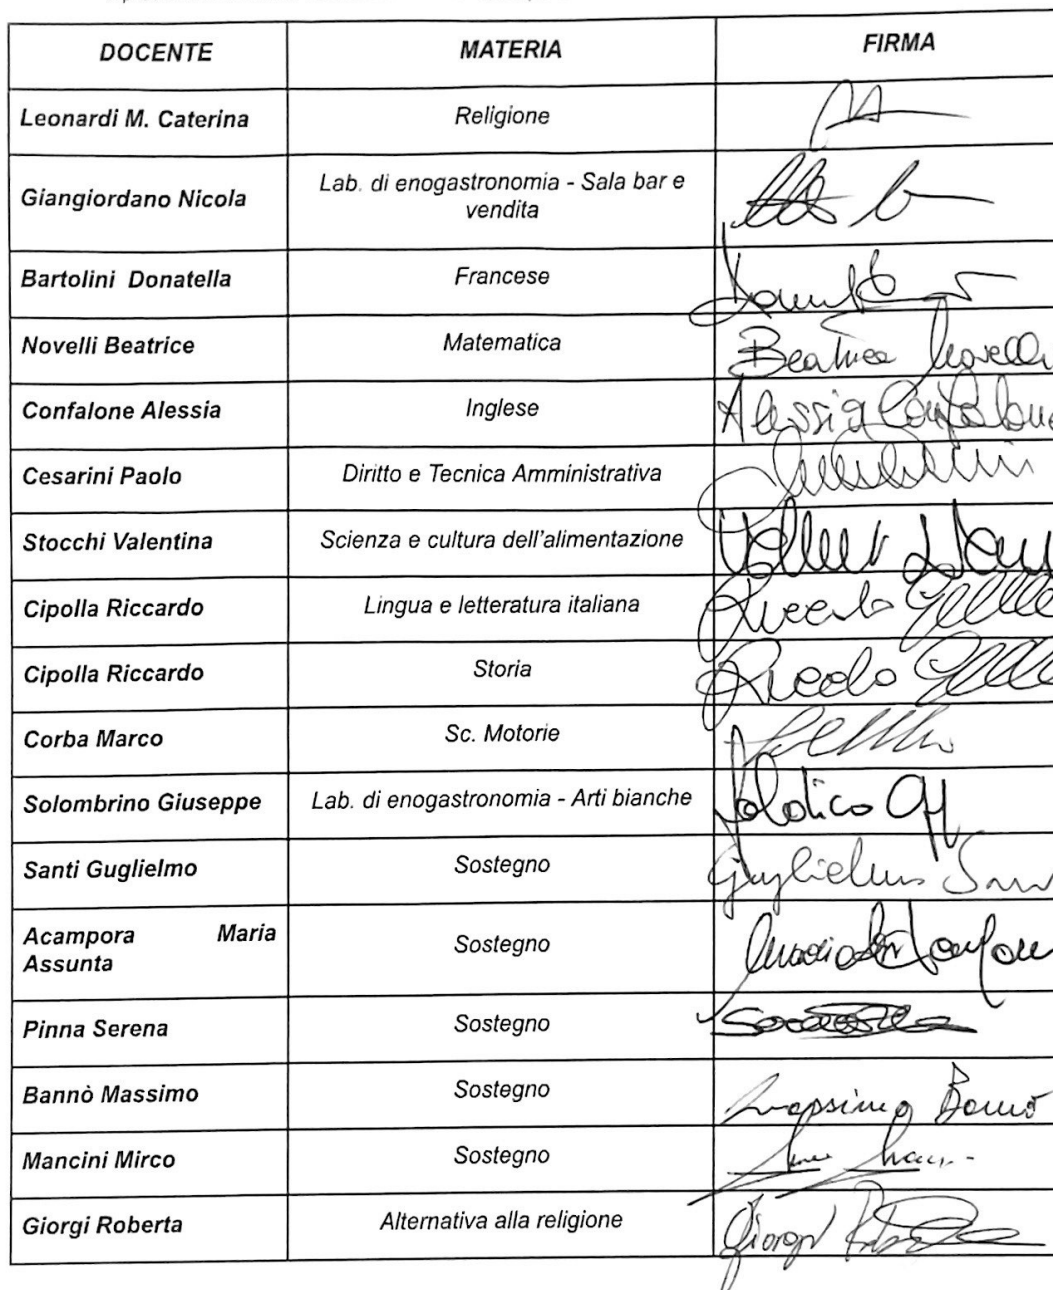 DOCENTE MATERIA FIRMA
Leonardi M. Caterina Religione
Giangiordano Nicola Lab. di enogastronomia - Sala bar e
vendita
Bartolini Donatella Francese
Novelli Beatrice Matematica Beatrice Novelli
Confalone Alessia Inglese Alessia Confalone
Cesarini Paolo Diritto e Tecnica Amministrativa
Stocchi Valentina Scienza e cultura dell'alimentazione
Cipolla Riccardo Lingua e letteratura italiana Riccardo
Cipolla Riccardo Storia Riccardo
Corba Marco Sc. Motorie
Solombrino Giuseppe Lab. di enogastronomia - Arti bianche
Santi Guglielmo Sostegno Guglielmo
Acampora Maria
Assunta Sostegno
Pinna Serena Sostegno
Bannò Massimo Sostegno Massimo Bannò
Mancini Mirco Sostegno
Giorgi Roberta Alternativa alla religione Giorgi